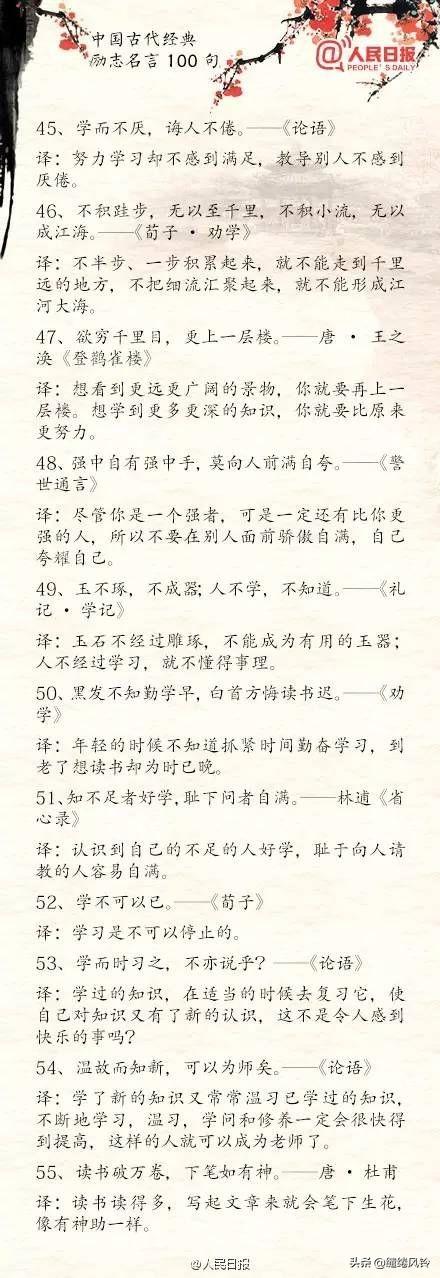 中国古代经典
励志名言 100 句
@人民日报
PEOPLE'S DAILY
45、学而不厌，诲人不倦。——《论语》
译：努力学习却不感到满足，教导别人不感到
厌倦。
46、不积跬步，无以至千里，不积小流，无以
成江海。——《荀子 · 劝学》
译：不半步、一步积累起来，就不能走到千里
远的地方，不把细流汇聚起来，就不能形成江
河大海。
47、欲穷千里目，更上一层楼。——唐 · 王之
涣《登鹳雀楼》
译：想看到更远更广阔的景物，你就要再上一
层楼。想学到更多更深的知识，你就要比原来
更努力。
48、强中自有强中手，莫向人前满自夸。——《警
世通言》
译：尽管你是一个强者，可是一定还有比你更
强的人，所以不要在别人面前骄傲自满，自己
夸耀自己。
49、玉不琢，不成器；人不学，不知道。——《礼
记 · 学记》
译：玉石不经过雕琢，不能成为有用的玉器；
人不经过学习，就不懂得事理。
50、黑发不知勤学早，白首方悔读书迟。——《劝
学》
译：年轻的时候不知道抓紧时间勤奋学习，到
老了想读书却为时已晚。
51、知不足者好学，耻下问者自满。——林逋《省
心录》
译：认识到自己的不足的人好学，耻于向人请
教的人容易自满。
52、学不可以已。——《荀子》
译：学习是不可以停止的。
53、学而时习之，不亦说乎？——《论语》
译：学过的知识，在适当的时候去复习它，使
自己对知识又有了新的认识，这不是令人感到
快乐的事吗？
54、温故而知新，可以为师矣。——《论语》
译：学了新的知识又常常温习已学过的知识，
不断地学习，温习，学问和修养一定会很快得
到提高，这样的人就可以成为老师了。
55、读书破万卷，下笔如有神。——唐 · 杜甫
译：读书读得多，写起文章来就会笔下生花，
像有神助一样。
@人民日报
头条 @缠绻风铃